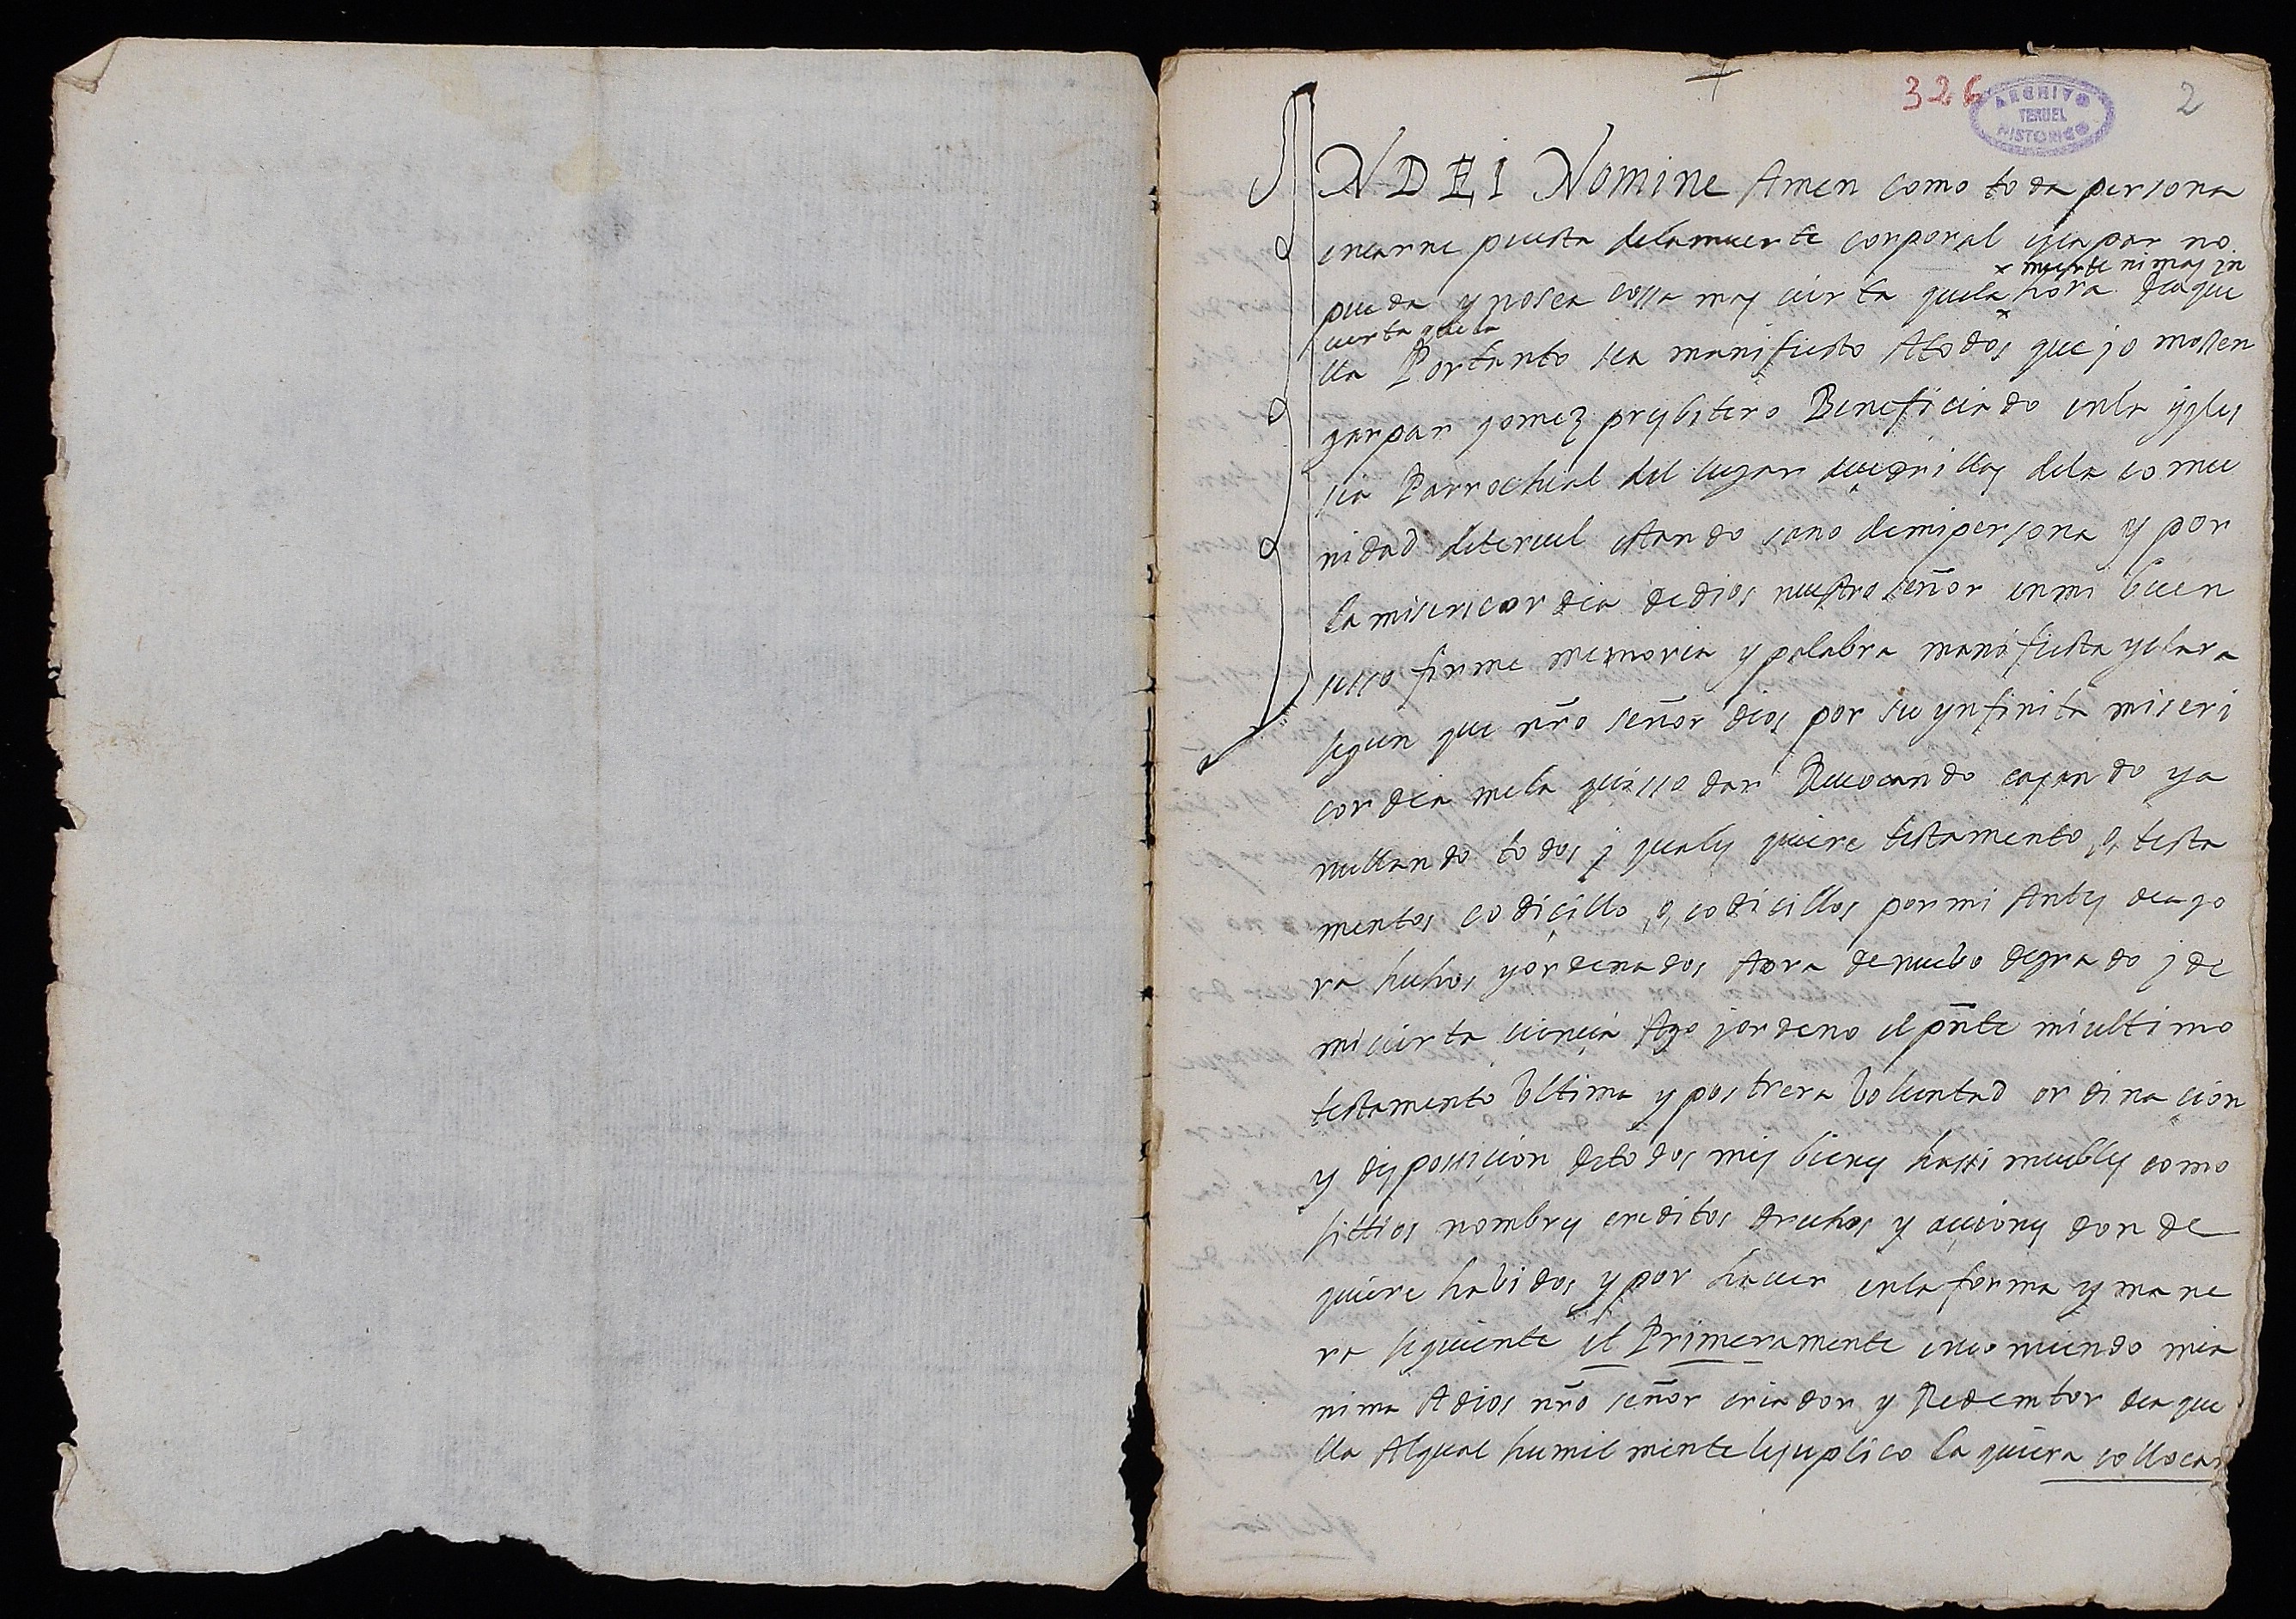 326
ARCHIVO
TERUEL
HISTORICO
2
IN DEI Nomine Amen como toda persona
encarne puesta dela muerte corporal escapar no
x muerte ni mas in
pueda y no sea cossa mas cierta quela x hora de aque
cierta que la
lla Por tanto sea manifiesto A todos que jo mossen
gaspar gomez presbitero Beneficiado enla ygles
sia Parrochial del lugar de la comu
nidad de teruel estando sano de mi persona y por
la misericordia de dios nuestro señor en mi buen
sesso firme memoria y palabra manifiesta y clara
segun que nr̃o señor dios por su ynfinita miseri
cordia mela quisso dar Revocando casando ya
nullando todos j quales quiere testamento, o, testa
mentos codiçillo, o, codicillos por mi Antes de ago
ra hechos y ordenados Aora de nuebo de grado j de
mi cierta ciençia Ago j ordeno el pñte mi ultimo
testamento Ultima y postrera Voluntad ordinaçion
y dispossicion de todos mis bienes hassi muebles como
sittios nombres creditos drechos y acçiones don de
quiere habidos y por hauer enla forma y mane
ra siguiente et Primeramente encomiendo mi a
nima A dios nr̃o señor criador y Redemtor de aque
lla Al qual humil mente le suplico la quiera collocar